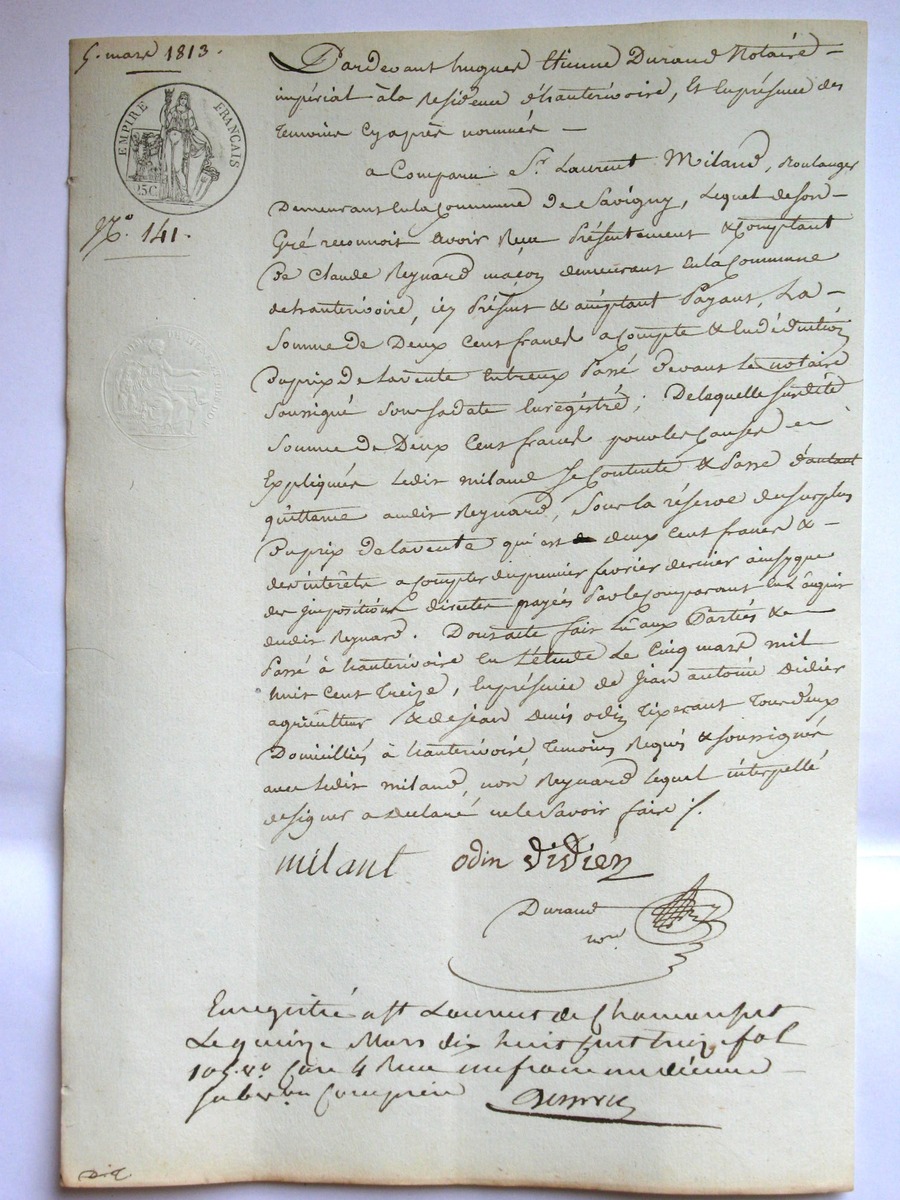 5. mars 1813.
EMPIRE FRANÇAIS
25C
N.o 141.
Pardevant hugues Etienne Durand Notaire
impérial à la Residence d'hauterivoire, Et Enprésence des
temoins Cy après nommés
a Comparu Sr. Laurent Miland, Boulanger
Demeurant En la Commune de Savigny, Lequel de son
Gré reconnoit avoir Reçu Présentement & Comptant
De Claude Reynard maçon demeurant En la Commune
de hauterivoire, icy Présent & acceptant Payant, La
Somme de Deux Cent francs a compte & En déduction
Du prix de la vente Entreux Passé Devant Le notaire
Soussigné Sous sa date Enregistré; De laquelle susdite
Somme de Deux Cent francs pour les Causes
Expliquées Ledit miland Se Contente & Passe d'autant
quittance audit Reynard, Sous la réserve du surplus
Du prix de la vente qui est deux Cent francs &
des intérêts a compter du premier fevrier dernier ainsy que
des impositions directes payées Par le comparant En L'acquit
dudit Reynard. Dont acte fait Lu aux Parties &
Passé à hauterivoire En L'étude Le Cinq mars mil
huit Cent Treize, En présence de Jean antoine Didier
agriculteur & de Jean Denis odin Tixerant Tous deux
Domiciliés à hauterivoire Temoins Requis & soussignés
avec Ledit miland, non Reynard lequel interpellé
de signer a Déclaré ne le Savoir faire /.
milant odin didier
Durand
nore
Enregistré a St Laurent de Chamousset
Le quinze Mars dix huit cent treize fol
105 vo Case 4 Reçu un franc un décime
Subvon Comprise